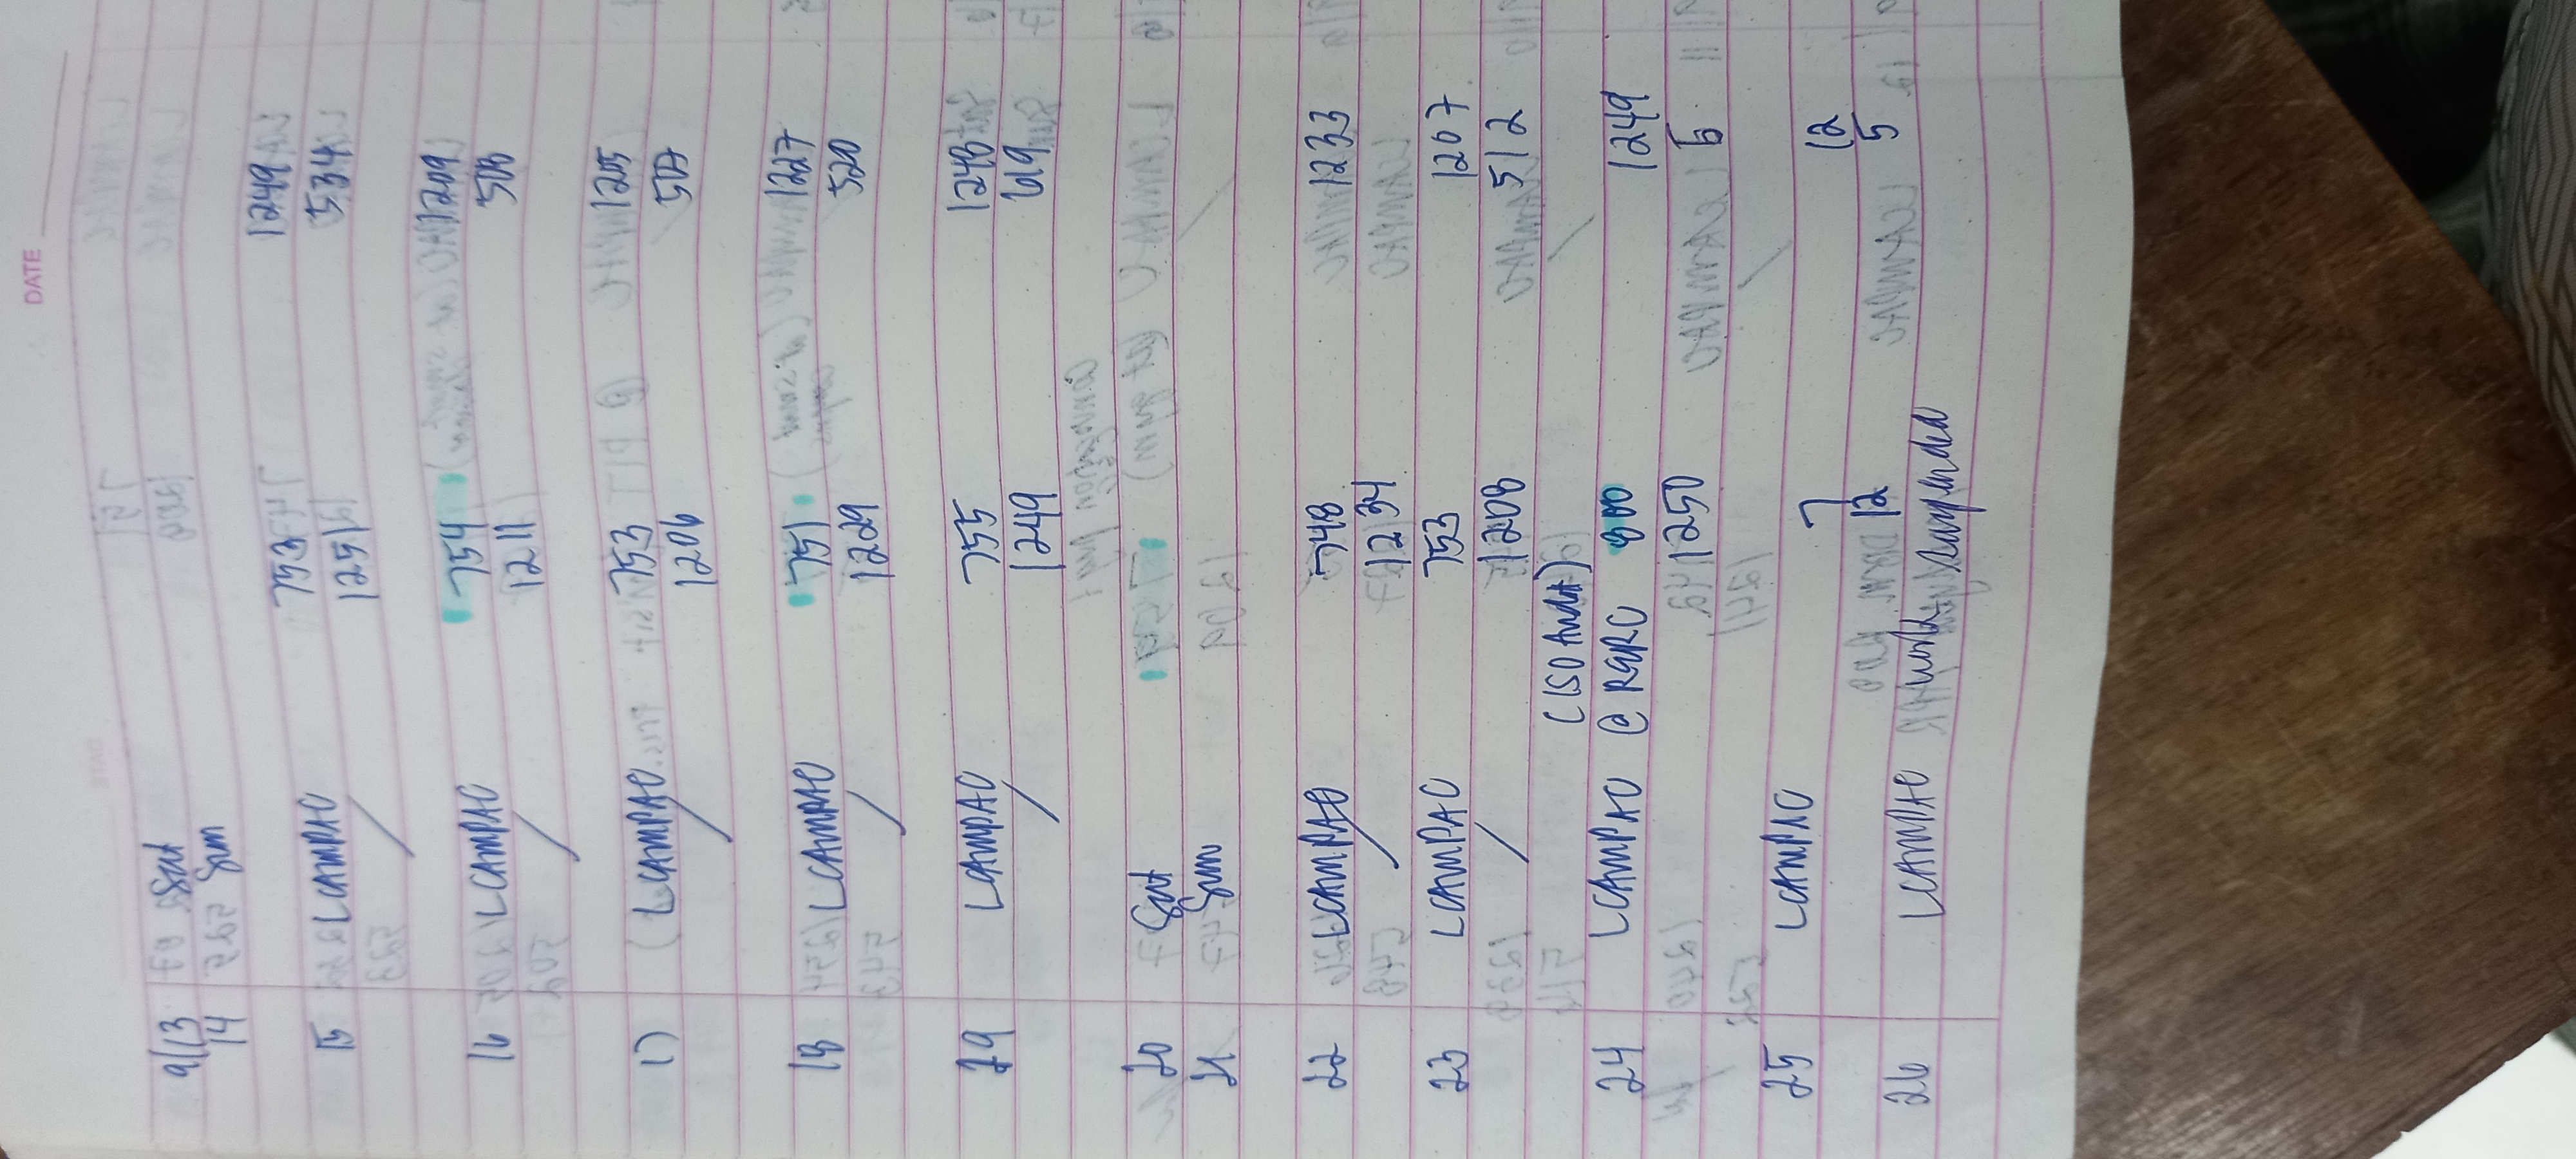 DATE
9/13 Sat
14 Sun
15 LCAMPAC 753 1249
1251 534
16 LCAMPAC 754 1209
1211 508
17 LCAMPAC 753 1205
1206 507
18 LCAMPAC 751 1227
1229 520
19 LCAMPAC 755 1248
1249 619
20 Sat
21 Sun
22 LCAMPAC 748 1233
1234
23 LCAMPAC 753 1207
1208 512
(ISO Audit)
24 LCAMPAC @ RGRC 800 1249
1250 5
25 LCAMPAC 7 12
12 5
26 LCAMPAC work suspended